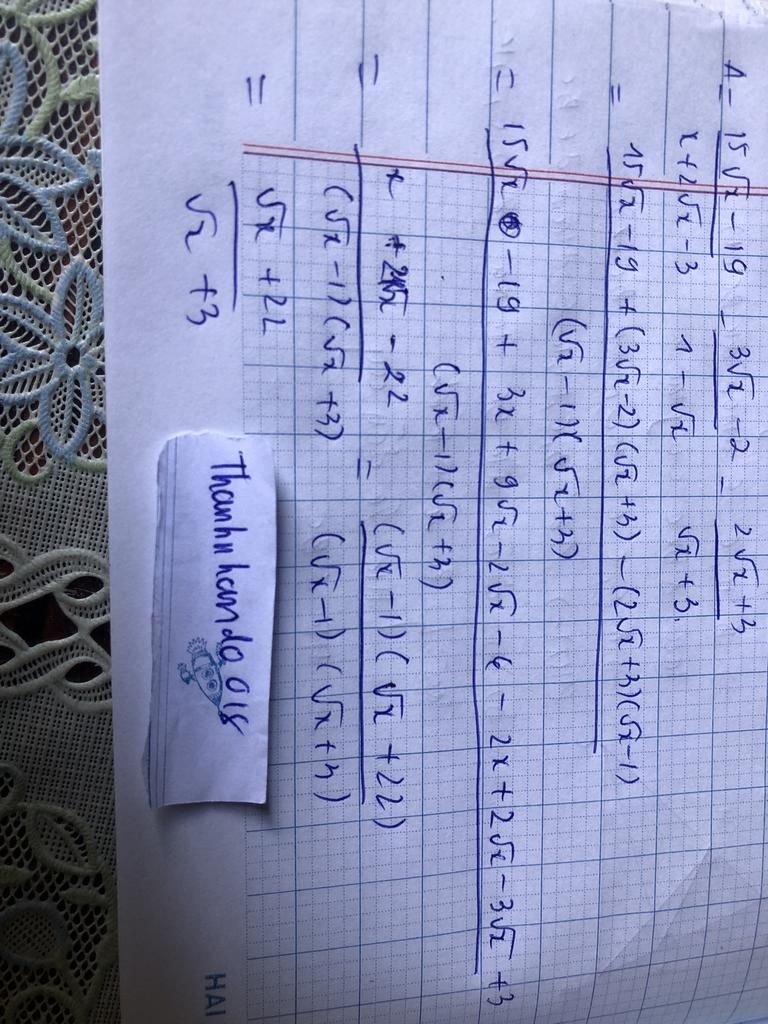 A = \frac{15\sqrt{x} - 19}{x + 2\sqrt{x} - 3} - \frac{3\sqrt{x} - 2}{1 - \sqrt{x}} - \frac{2\sqrt{x} + 3}{\sqrt{x} + 3}
= \frac{15\sqrt{x} - 19 + (3\sqrt{x} - 2)(\sqrt{x} + 3) - (2\sqrt{x} + 3)(\sqrt{x} - 1)}{(\sqrt{x} - 1)(\sqrt{x} + 3)}
= \frac{15\sqrt{x} - 19 + 3x + 9\sqrt{x} - 2\sqrt{x} - 6 - 2x + 2\sqrt{x} - 3\sqrt{x} + 3}{(\sqrt{x} - 1)(\sqrt{x} + 3)}
= \frac{x + 21\sqrt{x} - 22}{(\sqrt{x} - 1)(\sqrt{x} + 3)} = \frac{(\sqrt{x} - 1)(\sqrt{x} + 22)}{(\sqrt{x} - 1)(\sqrt{x} + 3)}
= \frac{\sqrt{x} + 22}{\sqrt{x} + 3}
Thanhnhanda018
HAI